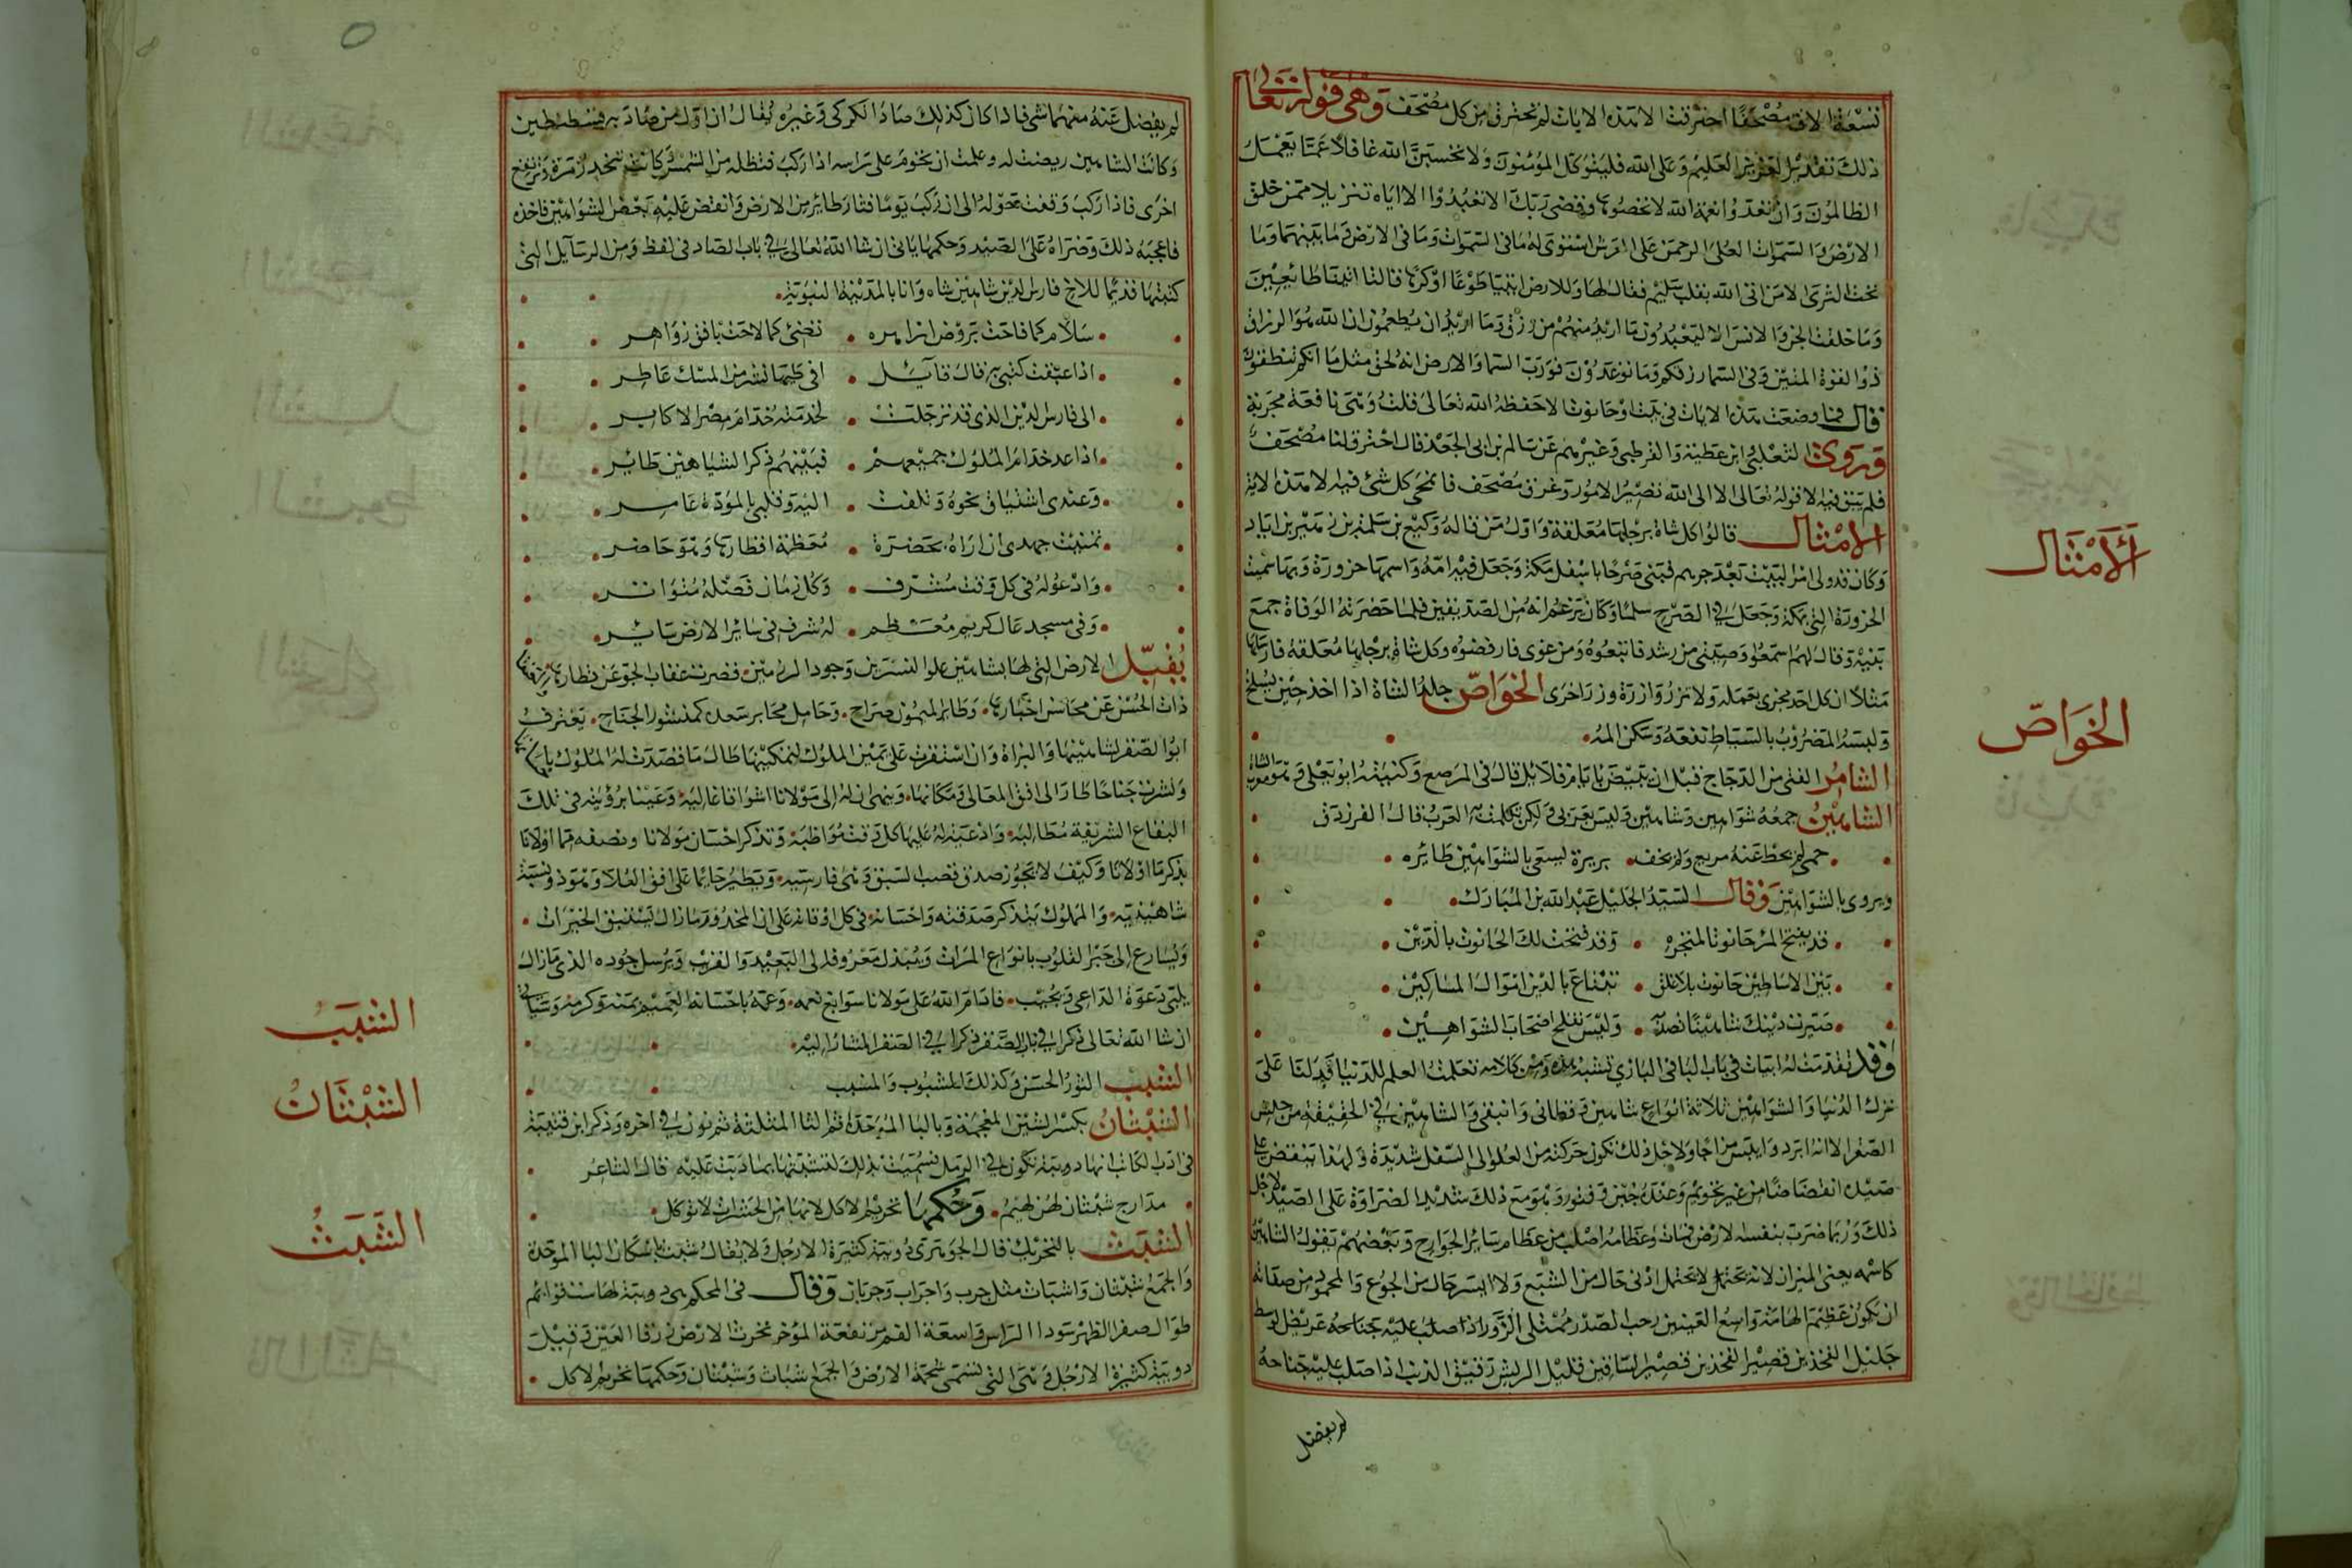 تسعة الاف مصحفا احترقت الا هذه الايات لم تحترق من كل مصحف وهي قوله تعالى
ذلك تقدير العزيز العليم وعلى الله فليتوكل المؤمنون ولا تحسبن الله غافلا عما يعمل
الظالمون وان تعدوا نعمة الله لا تحصوها وقضى ربك الا تعبدوا الا اياه تنزيلا ممن خلق
الارض والسموات العلى الرحمن على العرش استوى له ما في السموات وما في الارض وما بينهما وما
تحت الثرى الا من اتى الله بقلب سليم فقال لها وللارض ايتيا طوعا او كرها قالتا اتينا طائعين
وما خلقت الجن والانس الا ليعبدون ما اريد منهم من رزق وما اريد ان يطعمون ان الله هو الرزاق
ذو القوة المتين وفي السما رزقكم وما توعدون فورب السما والارض انه لحق مثل ما انكم تنطقون
قال فما وضعت هذه الايات في بيت او حانوت الا حفظه الله تعالى قلت وهي نافعة مجربة
وروى الثعلبي ابن عطية والقرطبي وغيرهم عن سالم بن ابي الجعد قال احترق لنا مصحف
فلم يبق فيه الا قوله تعالى الا الى الله تصير الامور وغرق مصحف فانمحى كل شئ فيه الا هذه الاية
الامثال قالوا كل شاة برجلها معلقة واول من قاله وكيع بن سلمة بن زهير بن اياد
وكان قد ولى امر البيت بعد جرهم فبنى صرحا باسفل مكة وجعل فيه امة واسمها حزورة وبها سميت
الحزورة التي بمكة وجعل في الصرح سلما وكان يزعم انه من الصديقين فلما حضرته الوفاة جمع
بنيه وقال لهم اسمعوا وصيتي من رشد فاتبعوه ومن غوى فارفضوه وكل شاة برجلها معلقة فارسلها
مثلا ان كل احد مجزى بعمله ولا تزر وازرة وزر اخرى الخواص جلد الشاة اذا اخذ حين يسلخ
ولبسه المضروب بالسياط نفعه وسكن المه
الشامرك الفتى من الدجاج قبل ان يبيض بايام قلايل قال في المرصع وكنيته ابو يعلى وهو معرب الشاه
الشاهين جمعه شواهين وشاهين وليس بعربي ولكن تكلمت به العرب قال الفرزدق
حمى لم يحط عنه سريع ولم يخف بريرة يسعى بالشواهين طائره
ويروى بالشواهين وقال السيد الجليل عبد الله بن المبارك
قد يفتح المرء حانوتا لمتجره وقد فتحت لك الحانوت بالدين
بين الاساطين حانوت بلا غلق تبتاع بالدين اموال المساكين
صيرت دينك شاهينا تصيد به وليس يفلح اصحاب الشواهين
وقد تقدمت له ابيات في باب البا في البازي تشبه هذه ومن كلامه تعلمنا العلم للدنيا فدلنا على
ترك الدنيا والشواهين ثلاثة انواع شاهين وقطامي وانيقي والشاهين في الحقيقة من جنس
الصقر الا انه ابرد وايبس مزاجا ولاجل ذلك تكون حركته من العلو الى السفل شديدة ولهذا ينقض على
صيده انقضاضا من غير تحويم وعنده جبن وفتور وهو مع ذلك شديد الضراوة على الصيد ولاجل
ذلك وربما ضرب بنفسه الارض فمات وعظامه اصلب من عظام سائر الجوارح وبعضهم يقول الشاهين
كاسمه يعني الميزان لانه يحتمل لا يحتمل ادنى حال من الشبع ولا ايسر حال من الجوع والمحمود من صفاته
ان يكون عظيم الهامة واسع العينين رحب الصدر ممتلى الزور اذا صلب عليه جناحه عريض الوسط
جليل الفخذين قصير الفخذين قصير الساقين قليل الريش رقيق الذنب اذا صلب عليه جناحه
لم يفضل
الامثال
الخواص
لم يفضل عنه منهما شي فاذا كان كذلك صاد الكركي وغيره يقال ان اول من صاد به قسطنطين
وكانت الشاهين ريضت له وعلمت ان تحوم على راسه اذا ركب فتظله من الشمس فكانت تنحدر مرة وترتفع
اخرى فاذا ركب وقفت حوله الى ان ركب يوما فثار طائر من الارض وانقض عليه بعض الشواهين فاخذه
فاعجبه ذلك وضراه على الصيد وحكمها ياتي ان شا الله تعالى في باب الصاد في لفظ ومن الرسايل التي
كتبتها قديما للاخ فارس الدين شاهين شاه وانا بالمدينة النبوية
سلام كما فاحت بروض ازاهره تضئ كما لاحت بافق زواهر
اذا عبقت كتبي به قال قايل افي طيها نشر من المسك عاطر
الى فارس الدين الذي قد ترحلت لخدمته خدام مصر الاكابر
اذا عد خدام الملوك جميعهم فبينهم ذكر الشياهين طائر
وعندي اشتياق نحوه وتلفت اليه وقلبي بالمودة عامر
تمنيت جهدي ان اراه بحضرة معظمة اقطارها وهو حاضر
وادعو له في كل وقت مشرف وكل زمان فضله متواتر
وفي مسجد عال كريم معظم له شرف في سائر الارض سائر
يقبل الارض التي لها بشاهين علوا النسرين وجود المرزمين فقصرت عقاب الجو عن مطارها
ذات الحسن عن محاسن اخبارها وطائر الميمون صراح وحامل مخابر سعده كمنشور الجناح يعترف
ابو الصقر لشاهينها والبزاة وان استقرت على يمين الملوك لتمكينها طال ما قصدت له الملوك
ولشرب جناحا طار الى افق المعالي ومكانها وينهى ان له الى مولانا اشواقا غالبة وعينا برؤيته في تلك
البقاع الشريفة مطالبة وادعية له عليها كل وقت مواظبة وتذكر احسان مولانا ونصفه فما اولانا
بذكر ما اولانا وكيف لا يحوز صدق قصب السبق وهي فارسيه ويطير حائما على افق العلا وهو ذو نسبة
شاهينيه والمملوك يتذكر صدقته واحسانه في كل اوقاته على ان المخدوم ما زال يستبق الخيرات
ويسارع الى جبر القلوب بانواع المبرات ويبذل معروفه الى البعيد والقريب ويرسل جوده الذي ما زال
يلبي دعوة الداعي ويجيب فادام الله على مولانا سوابغ نعمه وعمه باحسانه العميم بمنه وكرمه وسياتي
ان شا الله تعالى ذكرا في باب الصقر ذكرا في الصقر المشار اليه
الشبب الثور المسن وكذلك المشبوب والمشب
الشبثان بكسر الشين المعجمة وبالبا الموحدة ثم الثا المثلثة ثم نون في اخره وذكر ابن قتيبة
في ادب الكاتب انها دويبة تكون في الرمل سميت بذلك لتشبثها بما دبت عليه قال الشاعر
مدارج شبثان لهن لهيم وحكمها تحريم الاكل لانها من الحشرات لا توكل
الشبث بالتحريك قال الجوهري دويبة كثيرة الارجل ولا يقال شبث باسكان البا الموحدة
والجمع شبثان واشباث مثل خرب واخراب وخربان وقال في المحكم هي دويبة لها ست قوائم
طوال صفر الظهر سودا الراس واسعة الفم مرتفعة المؤخر تحرث الارض زرقا العين وقيل
دويبة كثيرة الارجل وهي التي تسمى شحمة الارض والجمع شباث وشبثان وحكمها تحريم الاكل
الشبب
الشبثان
الشبث